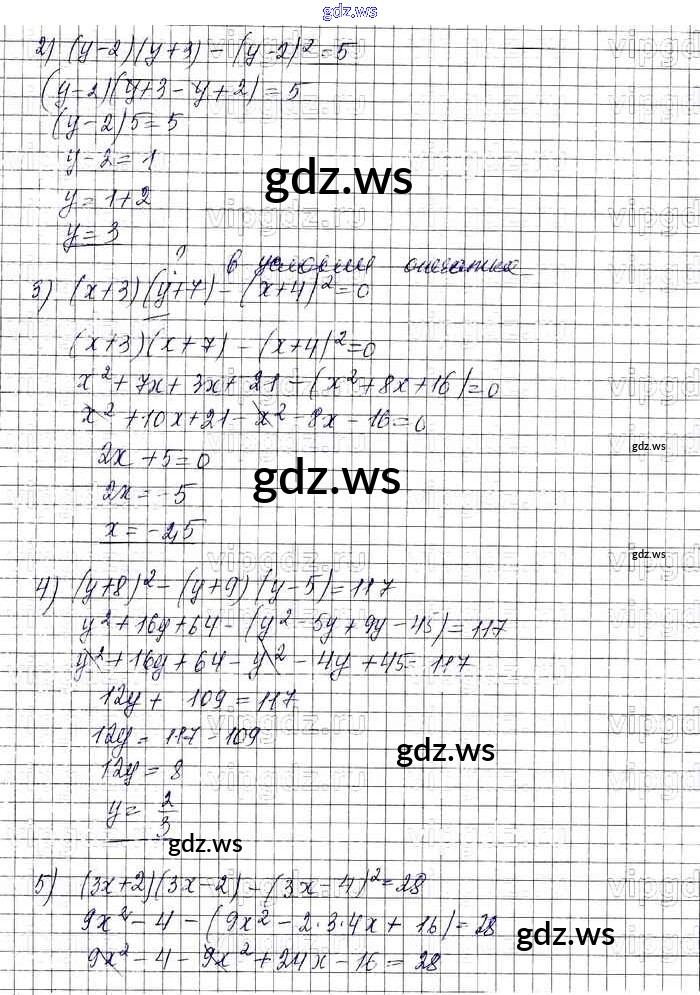 gdz.ws
2) (y-2)(y+3) - (y-2)² = 5
(y-2)(y+3-y+2) = 5
(y-2)5 = 5
y-2 = 1
gdz.ws
y = 1+2
vipgdz.ru
y = 3
? в условии опечатка
3) (x+3)(y+7) - (x+4)² = 0
(x+3)(x+7) - (x+4)² = 0
x² + 7x + 3x + 21 - (x² + 8x + 16) = 0
x² + 10x + 21 - x² - 8x - 16 = 0
gdz.ws
2x + 5 = 0
gdz.ws
2x = -5
x = -2,5
gdz.ws
vipgdz.ru
4) (y+8)² - (y+9)(y-5) = 117
y² + 16y + 64 - (y² - 5y + 9y - 45) = 117
y² + 16y + 64 - y² - 4y + 45 = 117
12y + 109 = 117
12y = 117 - 109
gdz.ws
12y = 8
y = 2/3
gdz.ws
5) (3x+2)(3x-2) - (3x-4)² = 28
9x² - 4 - (9x² - 2·3·4x + 16) = 28
gdz.ws
9x² - 4 - 9x² + 24x - 16 = 28